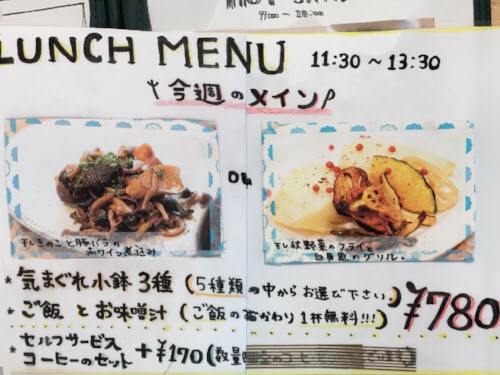 LUNCH MENU 11:30 ~ 13:30
今週のメイン
干しきのこと豚バラの
赤ワイン煮込み
干し秋野菜のフライと
白身魚のグリル。
* 気まぐれ小鉢3種 (5種類の中からお選び下さい。)
* ご飯とお味噌汁 (ご飯のおかわり1杯無料!!!)
¥780
* セルフサービス
コーヒーのセット + ¥170 (数量